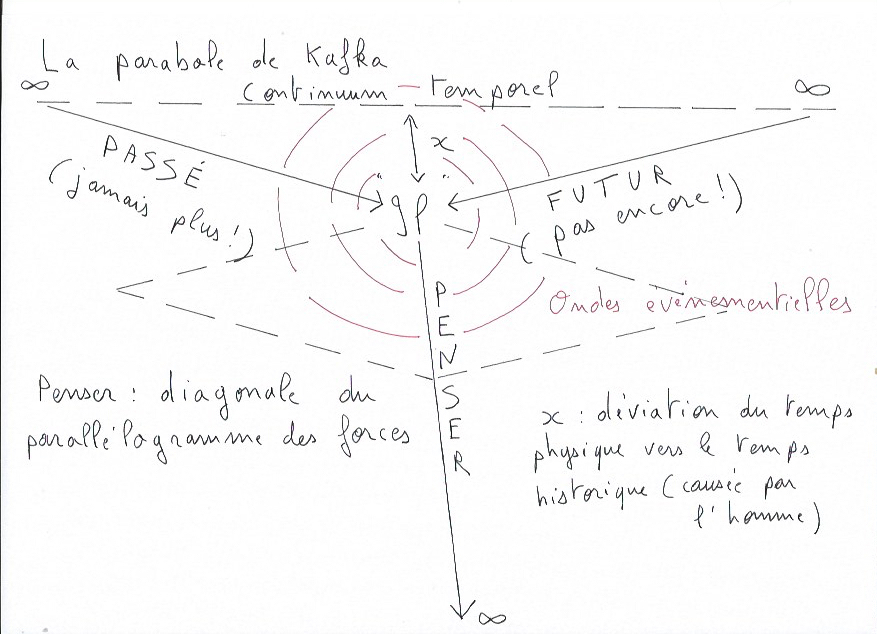 La parabole de Kafka
∞ Continuum temporel ∞
x
PASSÉ
(jamais plus!)
"gp"
FUTUR
(pas encore!)
PENSER
Ondes événementielles
Penser : diagonale du
parallélogramme des forces
x : déviation du temps
physique vers le temps
historique (causée par
l'homme)
∞